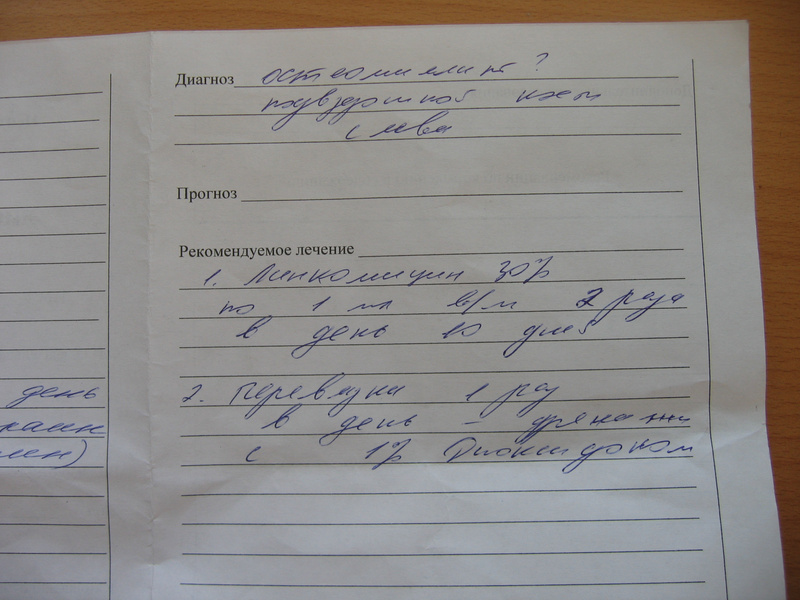 Диагноз остеомиелит?
подвздошной кости
слева
Прогноз
Рекомендуемое лечение
1. Линкомицин 30%
по 1 мл в/м 2 раза
в день 10 дней
день
2. Перевязки 1 раз
в день - дренажи
с 1% Диоксидином